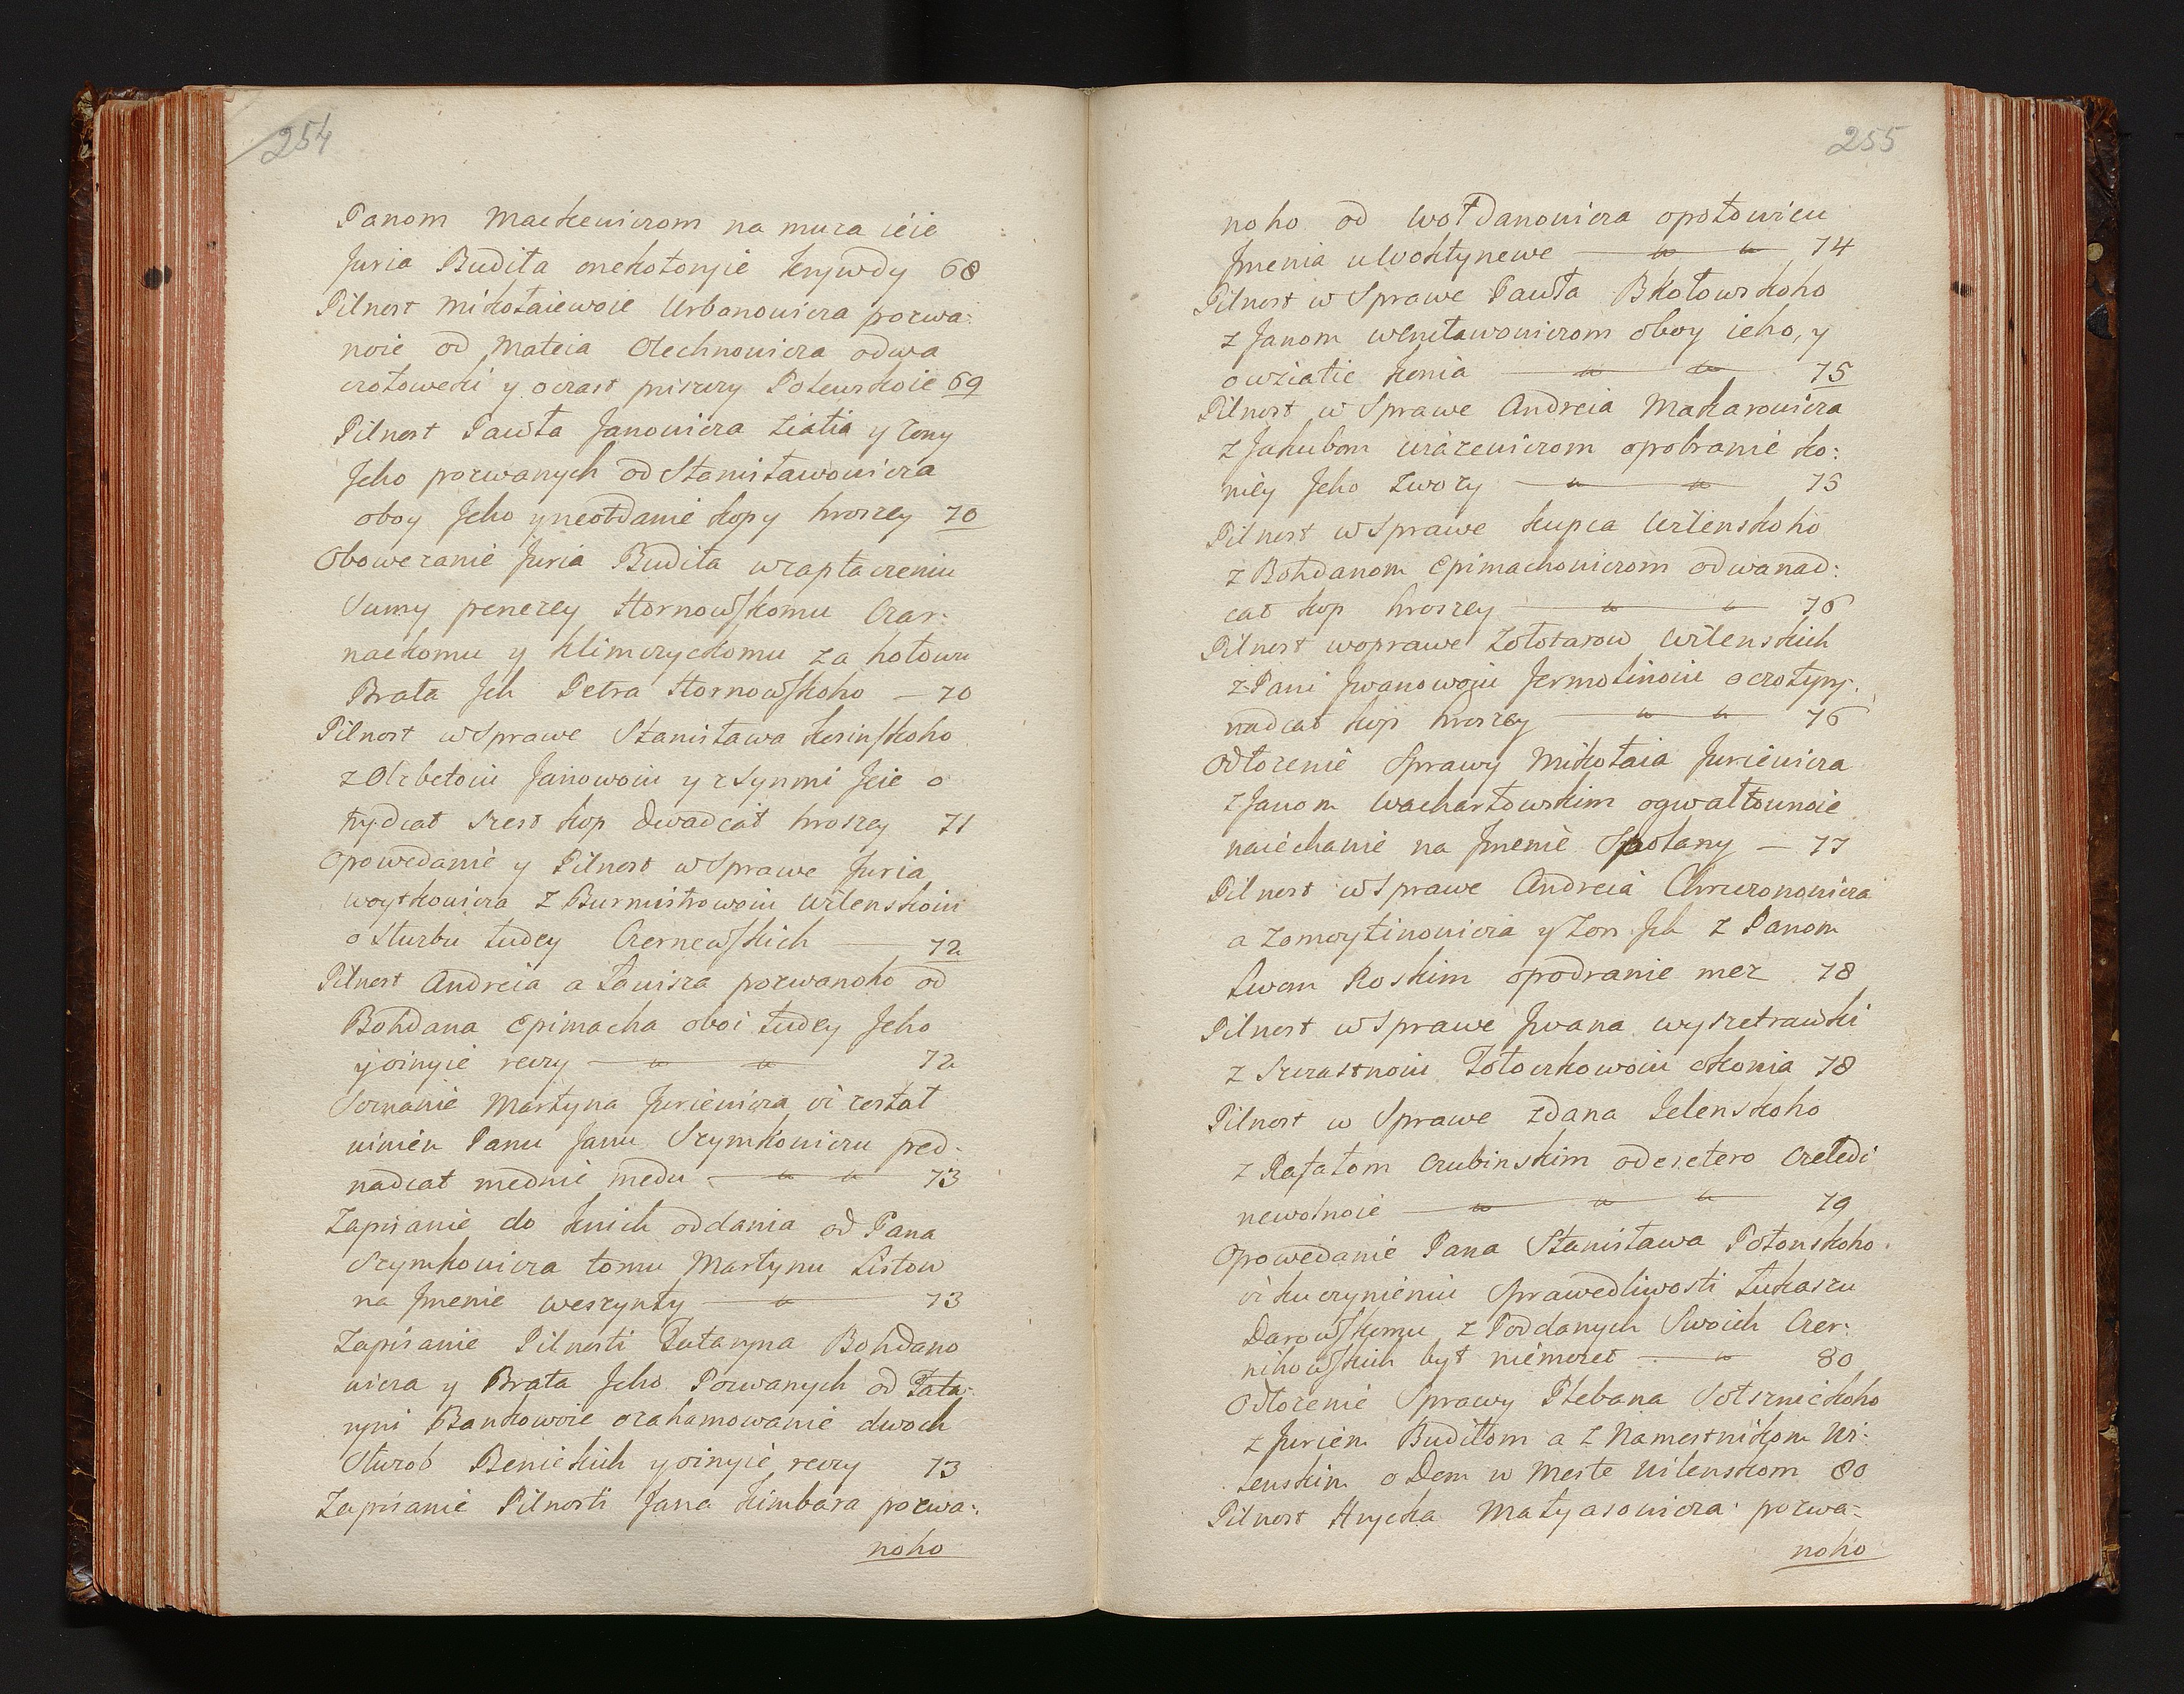 254
Panom Mackewiczom na muza ieie
Juria Budiła onekotoryie krywdy 68
Pilnost Mikołaiewoie Urbanowicza pozwa:
noie od Mateia Olechnowicza odwa
czotoweki y oczast puszczy Polewskoie 69
Pilnost Pawła Janowicza Ziatia y Żony
Jeho pozwanych od Stanisławowicza
oboy Jeho y neotdanie kopy hroszey 70
Obowezanie Juria Budiła wzapłaczeniu
Sumy penezey Hornowskomu Czar:
nackomu y Klimczyckomu za hołowu
Brata Jch Petra Hornowskoho — 70
Pilnost w Sprawe Stanisława Kosinskoho
z Olzbetoiu Janowoiu y z Synmi Jeie o
trydcat szest kop dwadcat hroszey 71
Opowedanie y Pilnost w Sprawe Juria
Woytkowicza z Burmistrowoiu Wilenskoiu
o służbu ludey Czernewskich — 72
Pilnost Andreia a Ławisza pozwanoho od
Bohdana Epimacha oboi ludey Jeho
y oinyie reczy — " — " 72
Soznanie Martyna Juriewicza iż został
winien Panu Janu Szymkowiczu ped-
nadcat mednic medu — " — " — 73
Zapisanie do knich oddania od Pana
Szymkowicza tomu Martynu Listow
na Jmenie weszynty — " — 73
Zapisanie Pilnosti Tataryna Bohdano
wicza y Brata Jeho Pozwanych od Tata-
ryni Bankowoie ozahamowanie dwoch
Służob Benickich y oinyie reczy 73
Zapisanie Pilnosti Jana Kimbara pozwa:
noho
255
noho od Wołdanowicza opołowicu
Jmenia uWoktynewe — " — " — 74
Pilnost w Sprawe Pawła Bkołowskoho
z Janom oboy ieho, y
owziatie konia — " — " 75
Pilnost w Sprawe Andreia Makarowicza
z Jakubom Wiazewiczom opobranie ko:
niey Jeho Zwozy — " — " — 75
Pilnost w Sprawe kupca Wilenskoho
z Bohdanom Epimachowiczom odwanad:
cat kop hroszey — " — " — 76
Pilnost woprawe Zołotarow Wilenskich
z Pani Jwanowoiu Jermolinoiu oczotyry.
nadcat kop hroszey — " — " — 76
Odłozenie Sprawy Mikołaia Juriewicza
z Janom Wachartowskim ogwałtownoie
naiechanie na Jmenie Spolany — 77
Pilnost w Sprawe Andreia Chrwzonowicza
a Zomoytinowicza y Żon Jch z Panom
Lwom Roskim opodranie mez 78
Pilnost w Sprawe Jwana wyszetrawki
z Szczastnoiu Połoczkowoiu okonia 78
Pilnost w Sprawe Zdana Zelenskoho
z Rafałom Czubinskim odesetero Czeledi
newolnoie — " — " — " — 79
Opowedanie Pana Stanisława Połonskoho.
iż kuczynieniu Sprawedliwosti Łukaszu
Darowskomu z Poddanych Swoich Czer:
nihowskich był niemozet — " — 80
Odłozenie Sprawy Plebana Solsznickoho
z Juriem Budiłom a z Namestnikom Wi:
lenskim o Dom w Meste Wilenskom 80
Pilnost Hrycka Matyasowicza pozwa-
noho